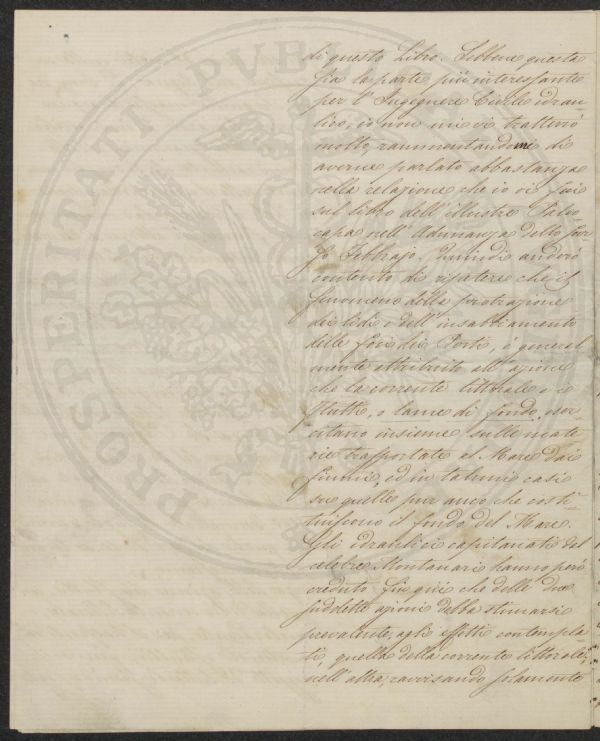 di questo Libro. Sebbene questa
sia la parte più interessante
per l'Ingegnere Civile idrau-
lico, io non mi vi tratterrò
molto, rammentandomi di
averne parlato abbastanza
nella relazione che io vi feci
sul libro dell'illustre Paleo-
capa nell'Adunanza dello scor-
so Febbrajo. Quindi anderò
contento di ripetere che il
fenomeno della protrazione
dei lidi e dell'insabbiamento
delle foci dei Porti, è general
mente attribuito all'azione
che la corrente littorale e i
flutti, o lame di fondo, eser
citano insieme sulle mate
rie trasportate al Mare dai
fiumi, ed in talune casi
su quelle pur anco che costi-
tuiscono il fondo del Mare.
Gli idraulici capitanati dal
celebre Montanari hanno però
creduto fin qui che delle due
sudette azioni debba stimarsi
prevalente, agli effetti contempla-
ti, quella della corrente littorale;
nell'altra, ravvisando solamente
PROSPERITATI PVB